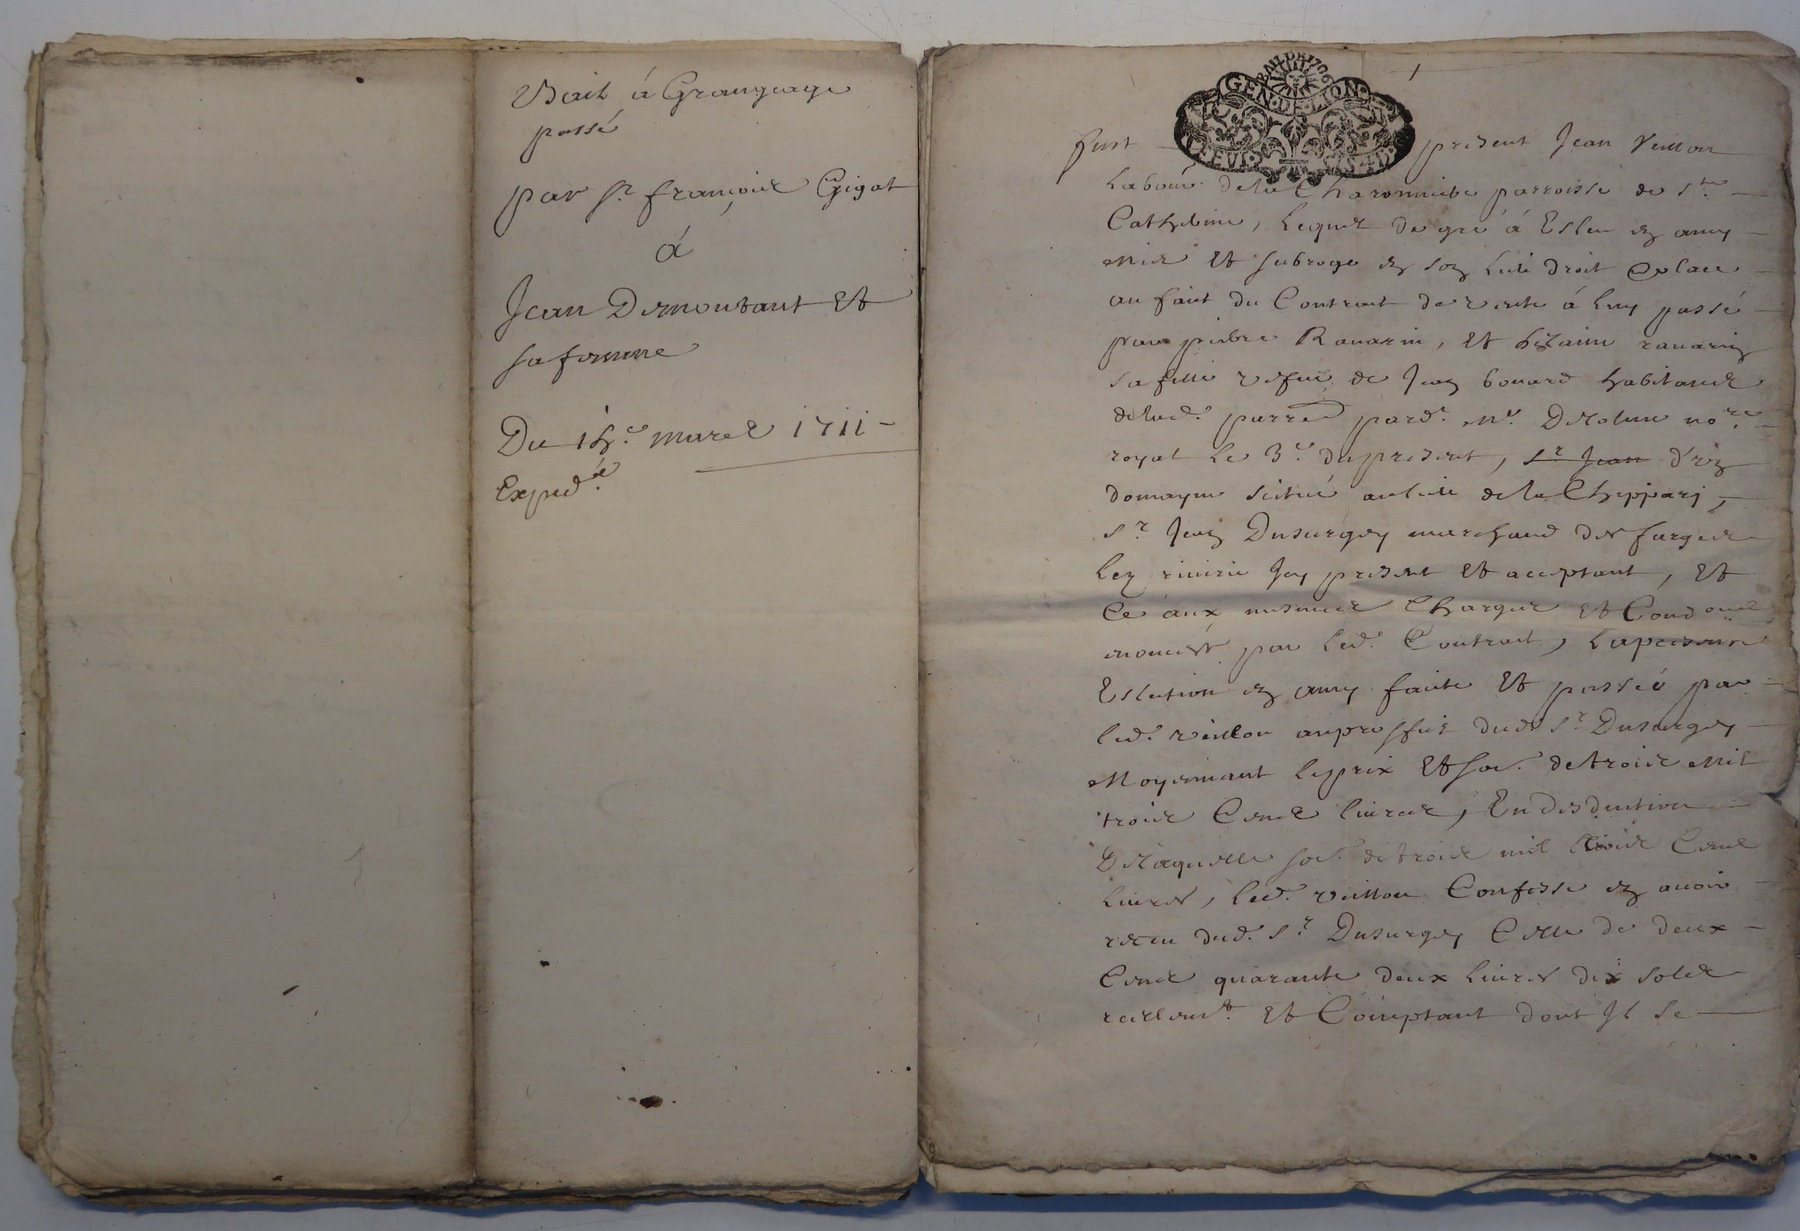 Bail à Grangeage
passé
par sr. françois Gigot
à
Jean Demontant Et
sa femme
Du 15e. mars 1711
Exped.ée
BAIL DE 1706
GEN·DE·LION·
fust present Jean Veillon
Labour. de la Charonniere parroisse de Ste.
Catherine, Lequel de gré à Esleu en amy
mis Et subrogé en son Lieu droit Et place
au fait du Contract de vente à luy passé
par pierre Ravarin, Et ravarin
sa fille vefve de Jean bouard habitands
de lad. parr. pard. Me. Delolme nore.
royal Le 3e. du present, sr Jean d'un
domayne scitué au lieu de la Chippary,
Sr. Jean Dusurgey marchand des farges
Lez riverie Icy present Et acceptant, Et
Ce aux mesmes Charges Et Condons
enoncés par Led. Contract, La presente
Eslection en amy faite Et passée par
led. veillon au proffit dud. Sr. Dusurgey
Moyennant le prix Et so. de trois Mil
trois Cens livres, En desduction
De laquelle so. de trois mil trois Cens
Livres, Led. veillon Confesse en avoir
receu dud. Sr. Dusurgey Celle de deux
Cens quarante deux Livres dix solz
reellemt. Et Comptant dont Il Se